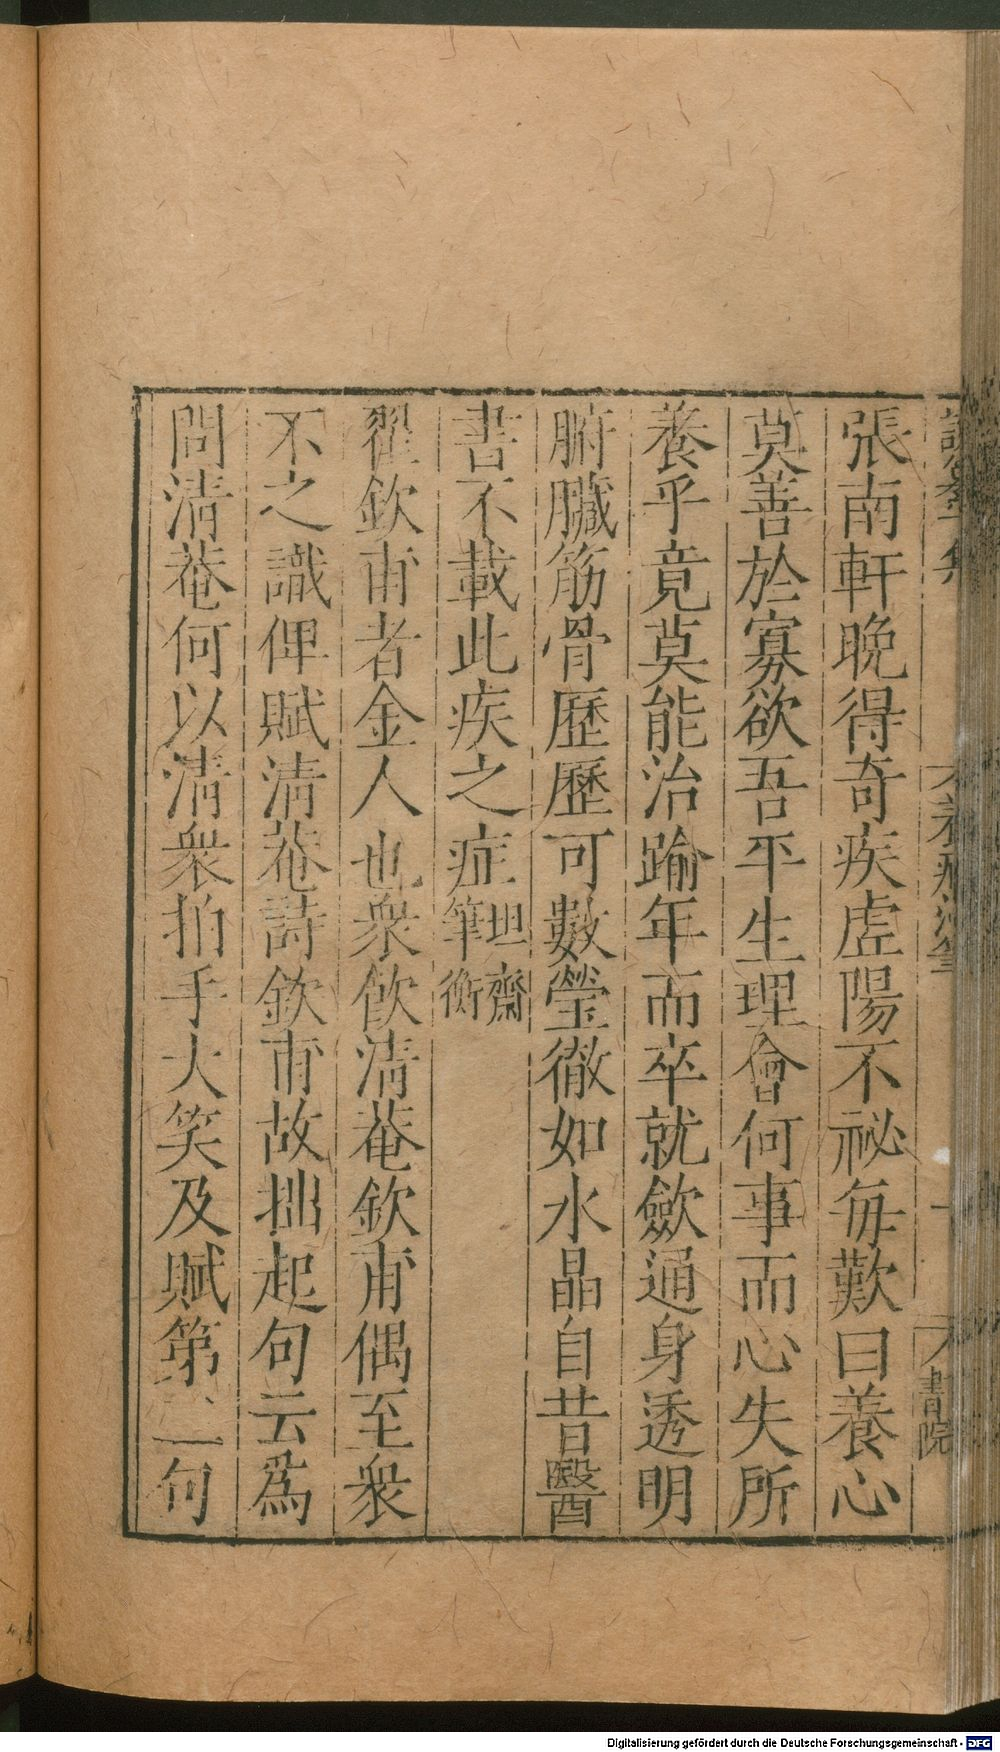 張南軒晚得奇疾虛陽不祕每歎曰養心
莫善於寡欲吾平生理會何事而心失所
養乎竟莫能治踰年而卒就斂通身透明
腑臟筋骨歷歷可數瑩徹如水晶自昔醫
書不載此疾之症坦齋筆衡
翟欽甫者金人也衆飲清菴欽甫偶至衆
不之識俾賦清菴詩欽甫故拙起句云爲
問清菴何以清衆拍手大笑及賦第二句
書院
Digitalisierung gefördert durch die Deutsche Forschungsgemeinschaft - DFG